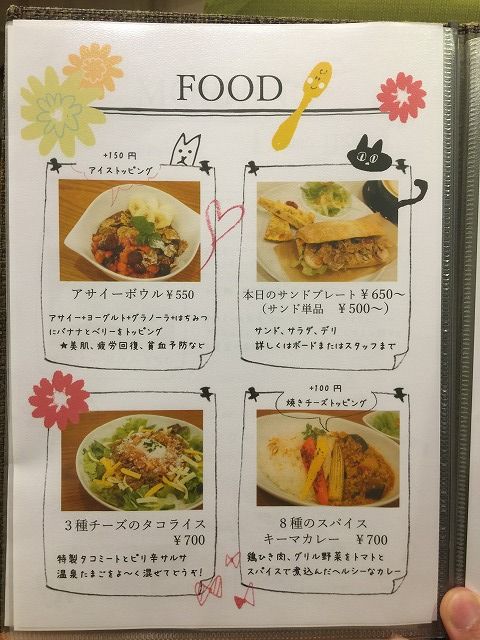 FOOD
+150円
アイストッピング
アサイーボウル ¥550
アサイー+ヨーグルト+グラノーラ+はちみつ
にバナナとベリーをトッピング
★美肌、疲労回復、貧血予防など
本日のサンドプレート ¥650～
(サンド単品 ¥500～)
サンド、サラダ、デリ
詳しくはボードまたはスタッフまで
3種チーズのタコライス
¥700
特製タコミートとピリ辛サルサ
温泉たまごをよ～く混ぜてどうぞ!
+100円
焼きチーズトッピング
8種のスパイス
キーマカレー ¥700
鶏ひき肉、グリル野菜をトマトと
スパイスで煮込んだヘルシーなカレー